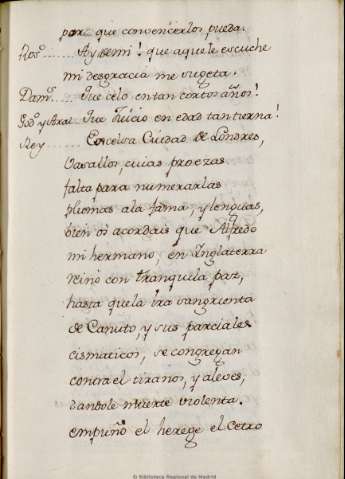 par que convencerlos pueda.
Ros.º ...... Ay de mi! que aque le escuche
mi desgracia me sugeta.
Dam.s ..... Que celo en tan cortos años!
God.º y Arae. Que Juicio en edad tan tierna!
Rey ...... Excelsa Ciudad de Londres,
Vasallos, cuias proezas
falta para numerarlas
plumas a la fama, y lenguas,
bien os acordais que Alfredo
mi hermano, en Inglaterra
reinó con tranquila paz,
hasta que la ira sangrienta
de Canuto, y sus parciales
cismaticos, se congregan
contra el tirano, y aleves,
dandole muerte violenta.
empuñó el herege el Cetro
© Biblioteca Regional de Madrid